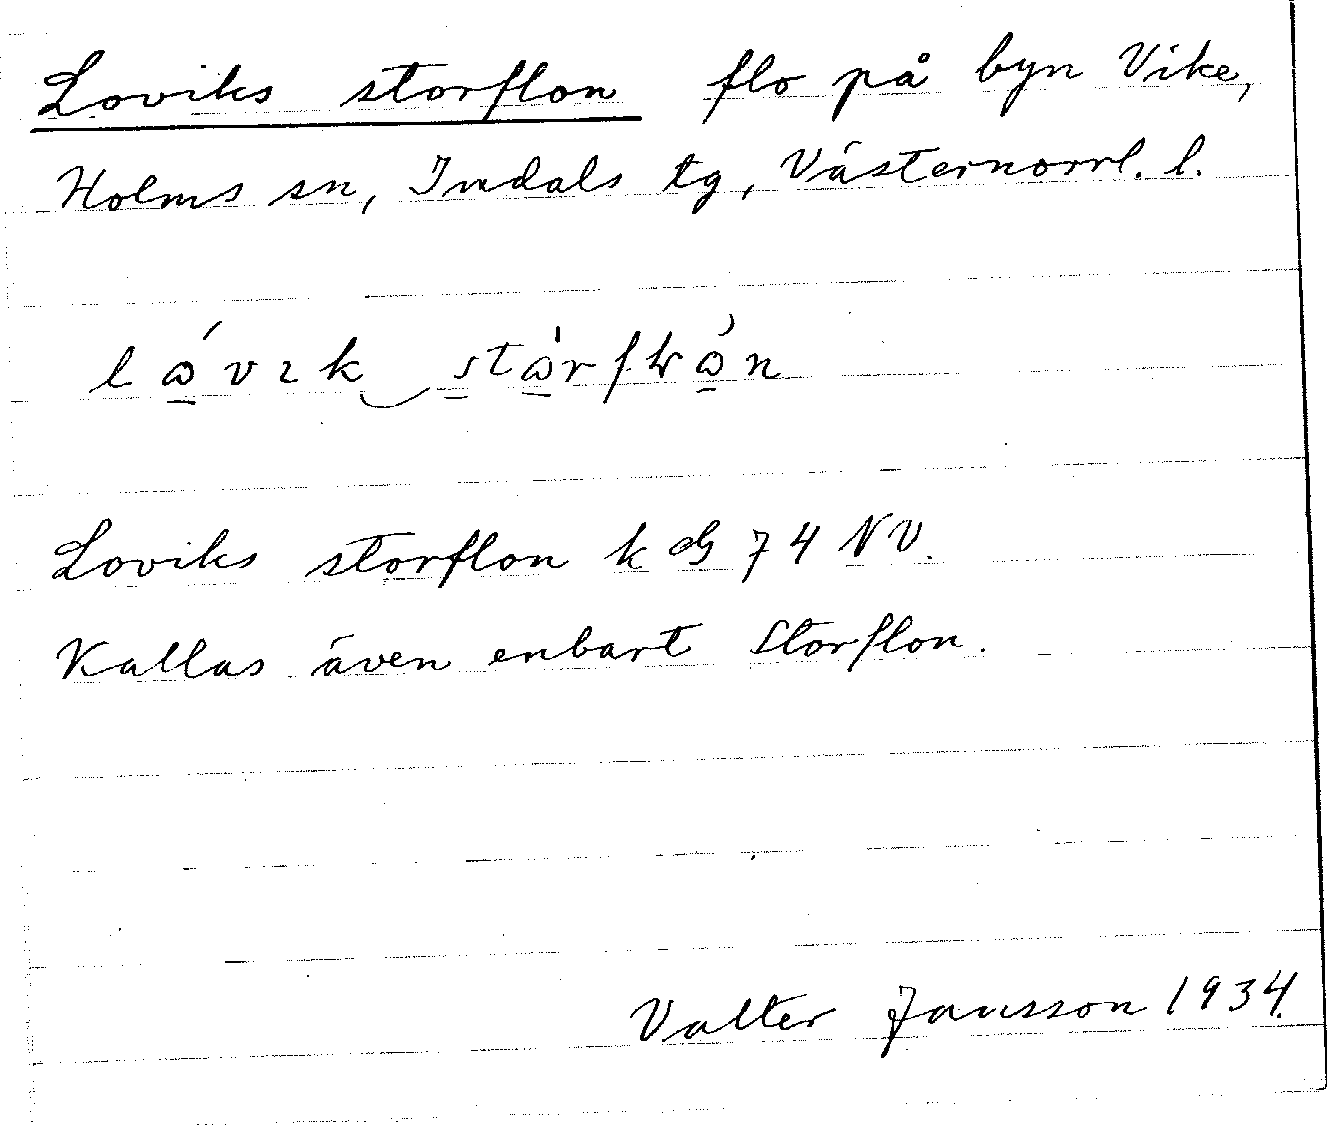 Loviks storflon flo på byn Vike,
Holms sn, Indals tg, Västernorrl. l.
Loviks storflon k dG 74 NV.
Kallas även enbart Storflon.
Valter Jansson 1934.